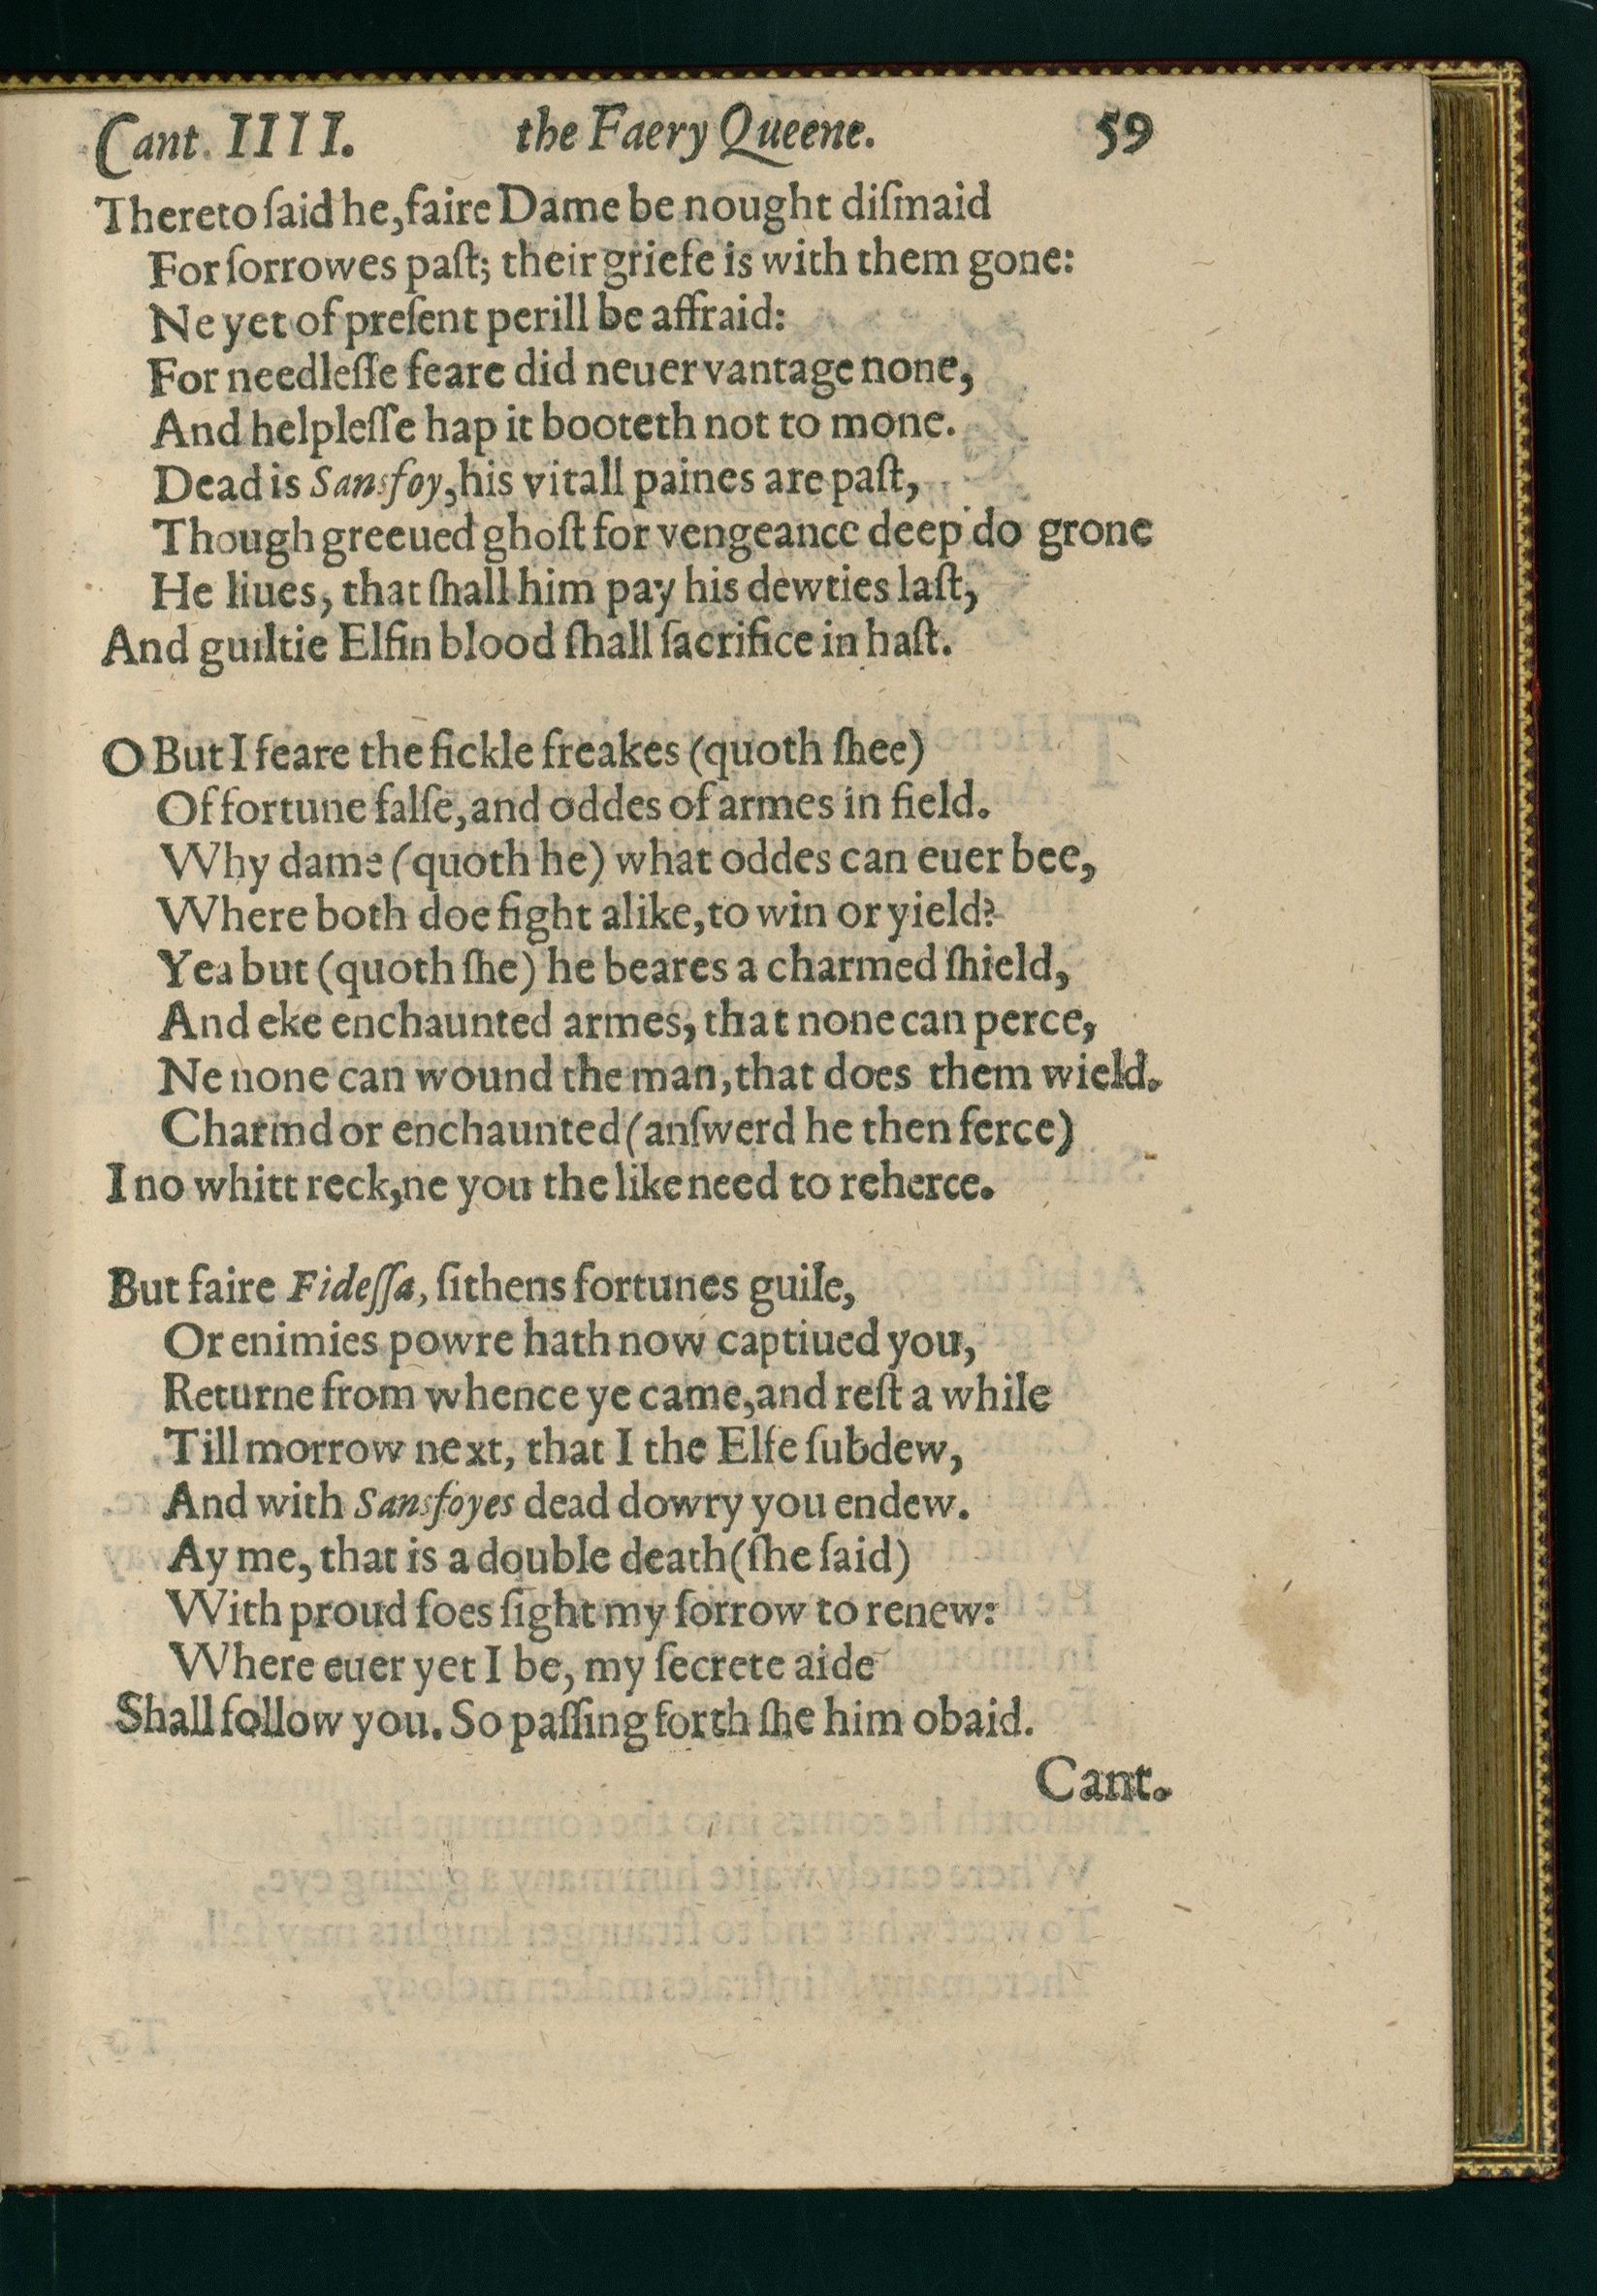 Cant. IIII. the Faery Queene. 59
Thereto ſaid he, faire Dame be nought diſmaid
For ſorrowes paſt; their griefe is with them gone:
Ne yet of preſent perill be affraid:
For needleſſe feare did neuer vantage none,
And helpleſſe hap it booteth not to mone.
Dead is Sansfoy, his vitall paines are paſt,
Though greeued ghoſt for vengeance deep do grone
He liues, that ſhall him pay his dewties laſt,
And guiltie Elfin blood ſhall ſacrifice in haſt.
O But I feare the fickle freakes (quoth ſhee)
Of fortune falſe, and oddes of armes in field.
Why dame (quoth he) what oddes can euer bee,
Where both doe fight alike, to win or yield?
Yea but (quoth ſhe) he beares a charmed ſhield,
And eke enchaunted armes, that none can perce,
Ne none can wound the man, that does them wield.
Charmd or enchaunted (anſwerd he then ferce)
I no whitt reck, ne you the like need to reherce.
But faire Fideſſa, ſithens fortunes guile,
Or enimies powre hath now captiued you,
Returne from whence ye came, and reſt a while
Till morrow next, that I the Elfe ſubdew,
And with Sansfoyes dead dowry you endew.
Ay me, that is a double death (ſhe ſaid)
With proud foes ſight my ſorrow to renew:
Where euer yet I be, my ſecrete aide
Shall follow you. So paſſing forth ſhe him obaid.
Cant.